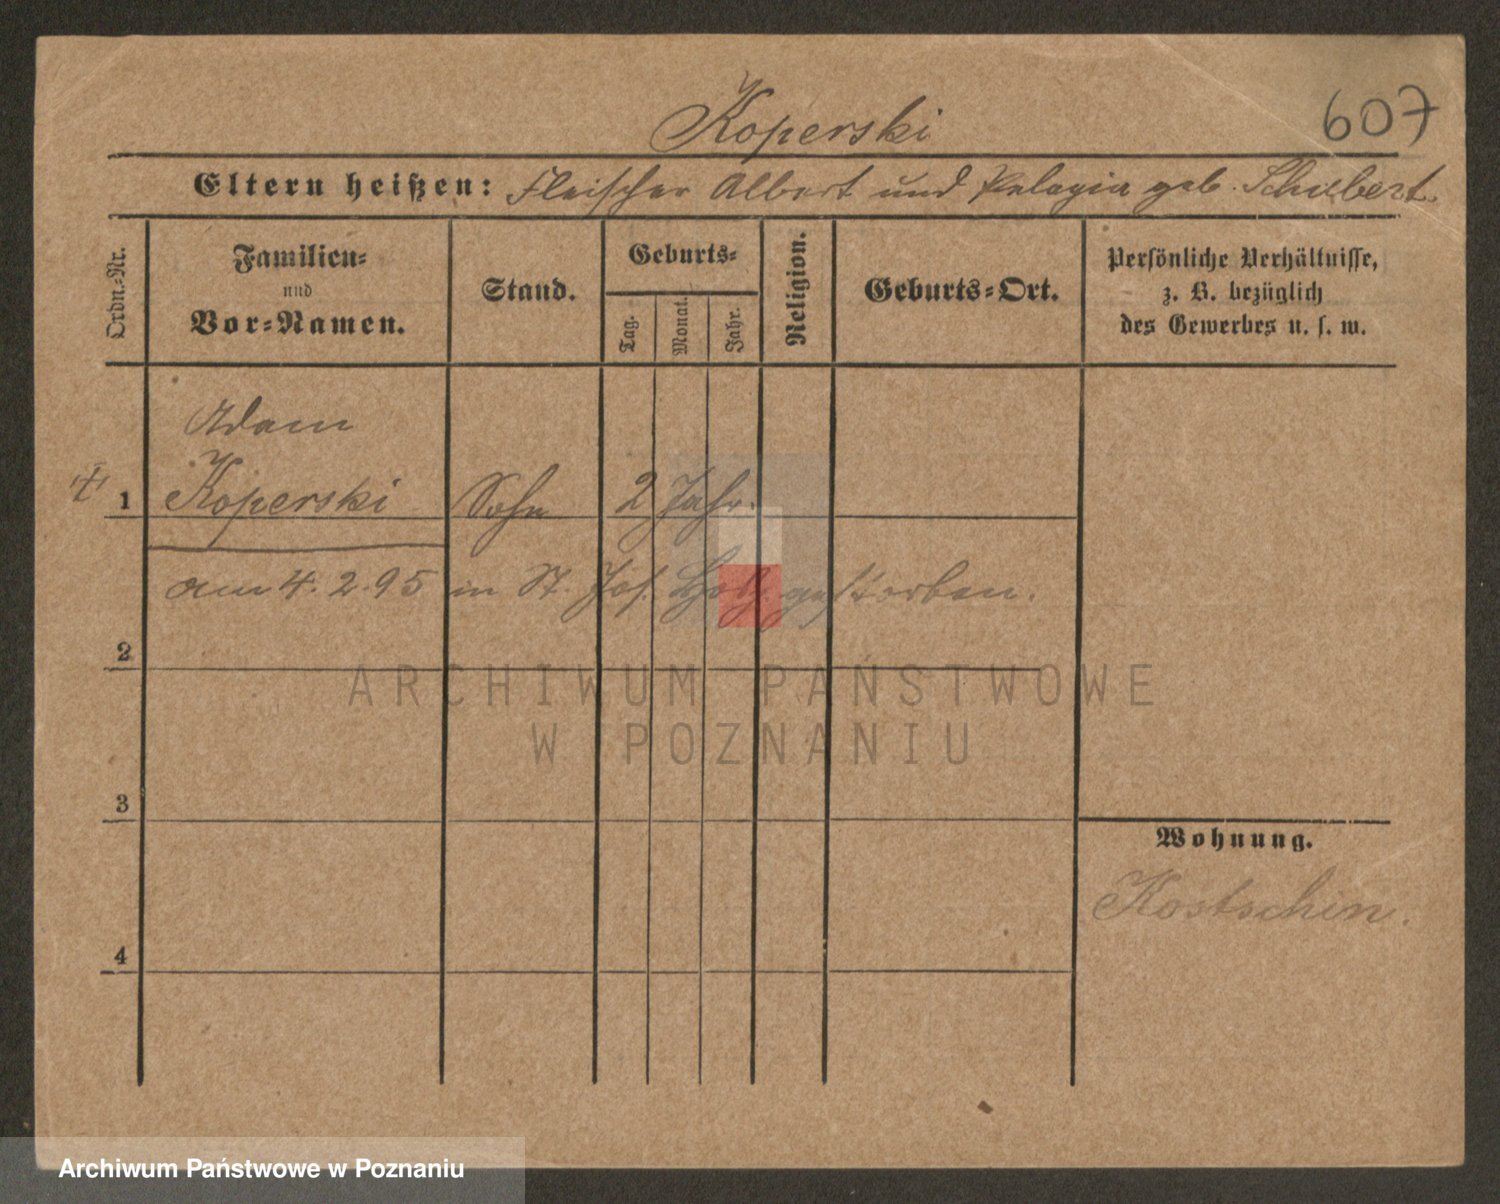 607
Koperski
Eltern heißen: Fleischer Albert und Pelagia geb. Schubert.
Ordn.-Nr.
Familien-
und
Vor-Namen.
Stand.
Geburts-
Tag.
Monat.
Jahr.
Religion.
Geburts-Ort.
Persönliche Verhältnisse,
z. B. bezüglich
des Gewerbes u. s. w.
Adam
1 Koperski Sohn 2 Jahr.
am 4.2.95 in St. Jos. gestorben.
2
3
4
Wohnung.
Kostschin.
ARCHIWUM PAŃSTWOWE
W POZNANIU
Archiwum Państwowe w Poznaniu